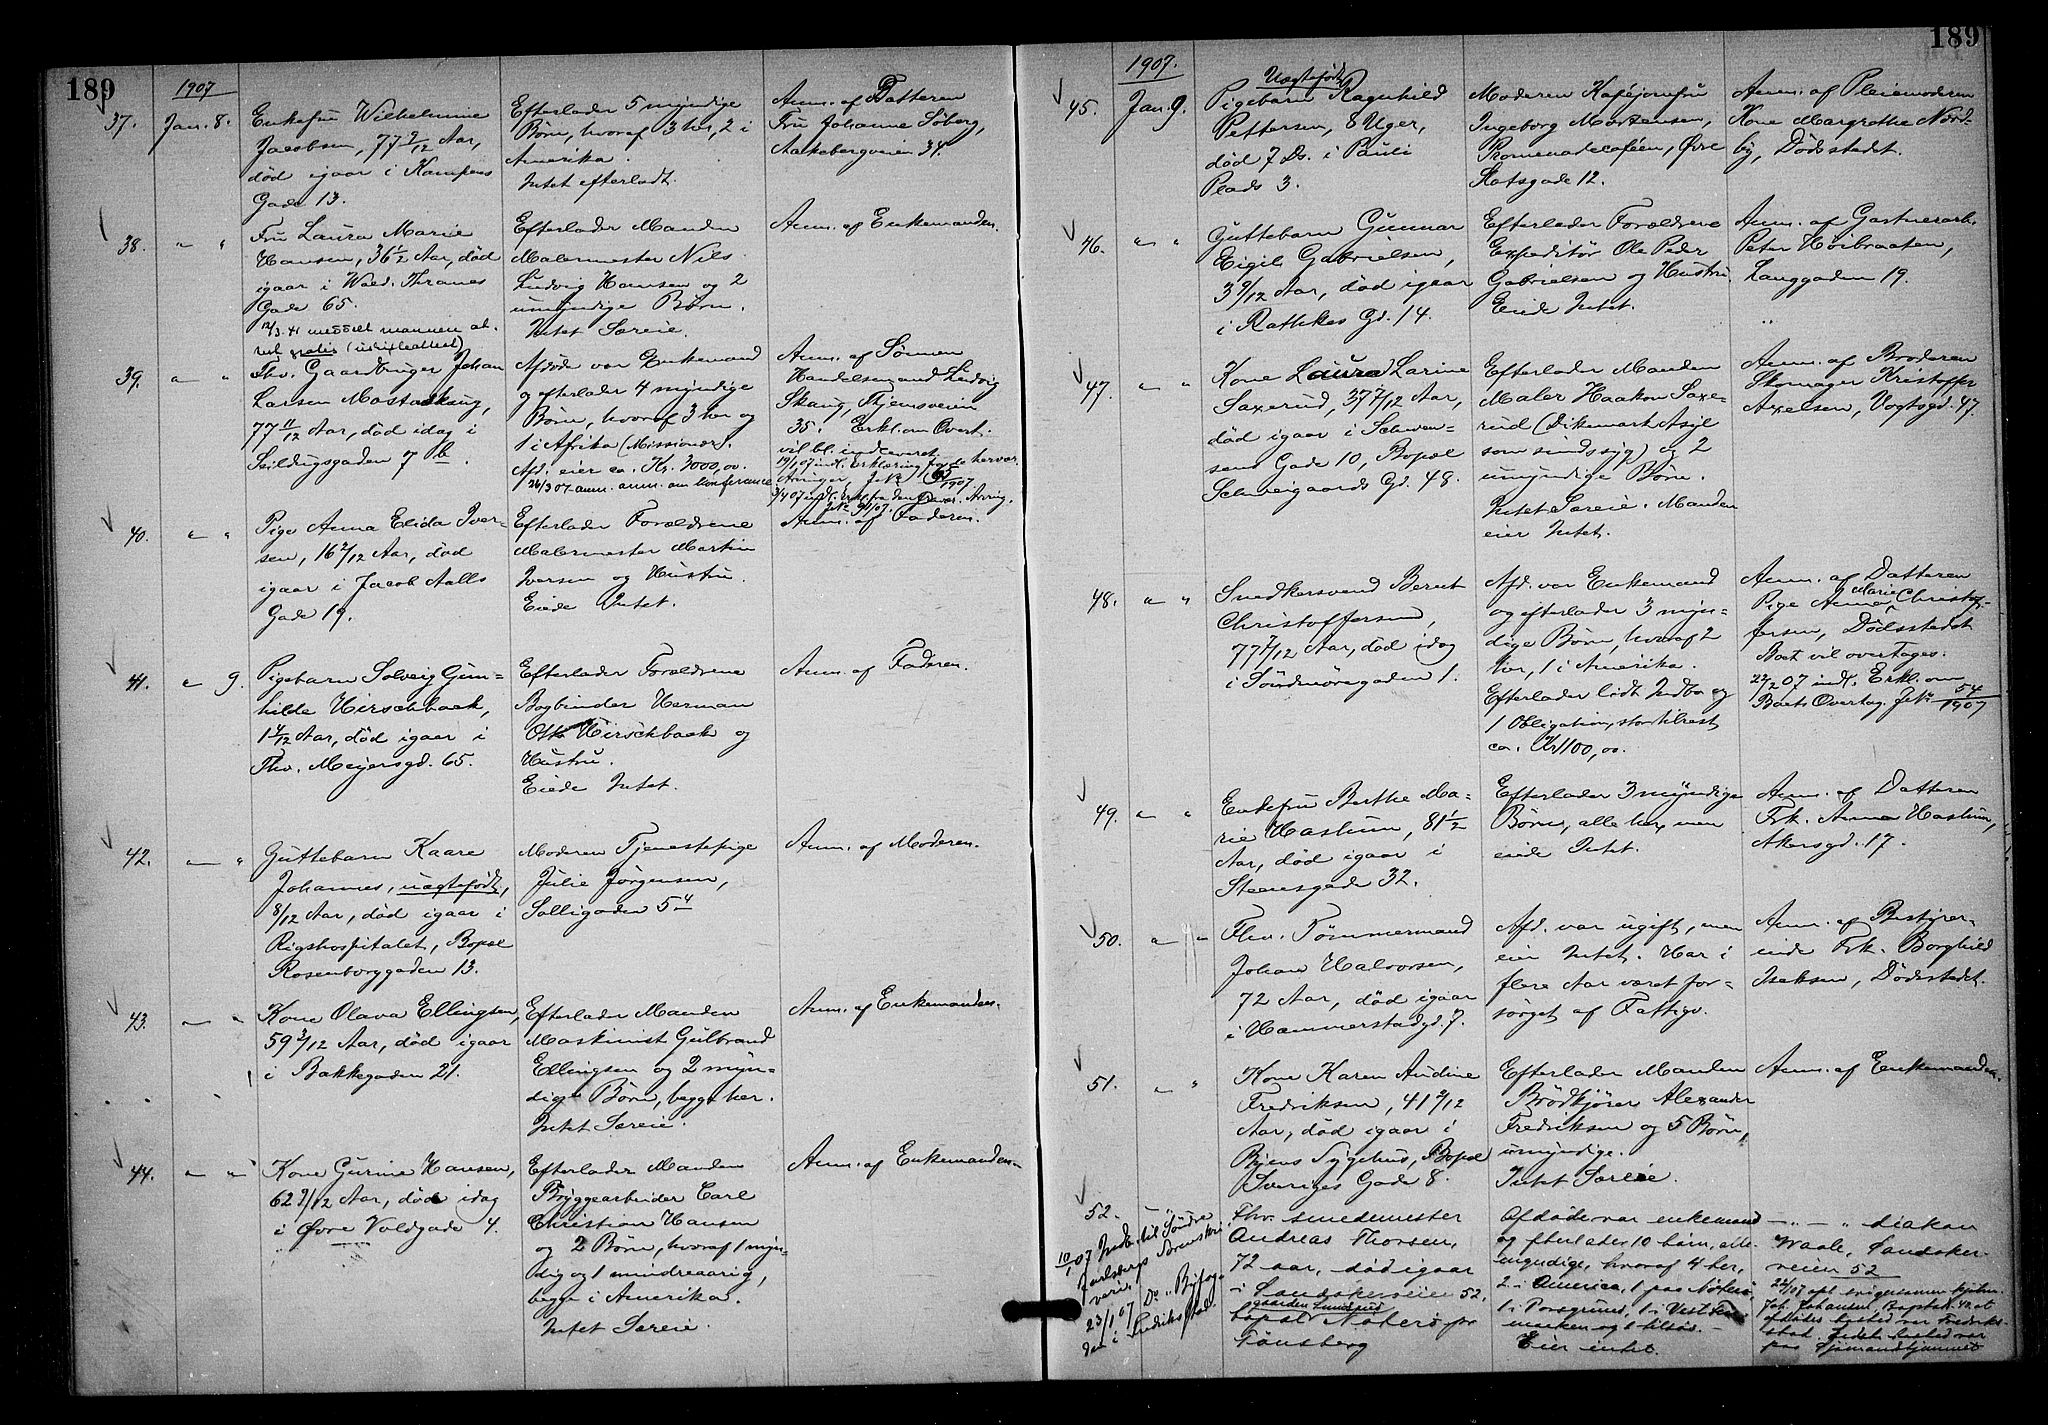 189
1907
37. Jan. 8.
Enkefru Wilhelmine
Jacobsen, 77 9/12 Aar,
død igaar i Kampens
Gade 13.
Efterlader 5 myndige
Børn, hvoraf 3 her, 2 i
Amerika.
Intet efterladt.
Anm. af Datteren
Fru Johanne Søberg,
Aakebergveien 34.
38. " "
Fru Laura Marie
Hansen, 36 1/2 Aar, død
igaar i Wald. Thranes
Gade 65.
12/3.41 meddelt mannen at-
test gratis (uskifteattest)
Efterlader Manden
Malermester Nils
Ludvig Hansen og 2
umyndige Børn.
Intet Særeie.
Anm. af Enkemanden.
39. " "
Fhv. Gaardbruger Johan
Larsen Mostadskaug,
77 11/12 Aar, død idag i
Seildugsgaden 7 b.
Afdøde var Enkemand
og efterlader 4 myndige
Børn, hvoraf 3 her og
1 i Afrika (Missionær).
Afd. eier ca. Kr. 3000,00.
26/3 07 anm. anm. om Konference
Anm. af Sønnen
Handelsmand Ludvig
Skaug, Tjemsveien
35. Erkl. om Overt.
vil bl. indleveret.
19/1 07 indk. Erklæring fra de hervær.
Arvinger, J.No 1907.
3/4 07 indk. Erkl. fra den fravær. Arving.
J.No 91/07.
40. " "
Pige Anna Elida Iver-
sen, 16 2/12 Aar, død
igaar i Jacob Aalls
Gade 19.
Efterlader Forældrene
Malermester Martin
Iversen og Hustru.
Eiede Intet.
Anm. af Faderen.
41. " 9.
Pigebarn Solveig Gun-
hilde Hirschback,
1 7/12 Aar, død igaar i
Thv. Meyersgd. 65.
Efterlader Forældrene
Bogbinder Herman
Otto Hirschback og
Hustru.
Eiede Intet.
Anm. af Faderen.
42. " "
Guttebarn Kaare
Johannes, uægtefødt,
8/12 Aar, død igaar i
Rigshospitalet, Bopæl
Rosenborggaden 13.
Moderen Tjenestepige
Julie Jørgensen,
Solligaden 5 4
Anm. af Moderen.
43. " "
Kone Olava Ellingsen,
59 3/12 Aar, død igaar
i Bakkegaden 21.
Efterlader Manden
Maskinist Gulbrand
Ellingsen og 2 myn-
dige Børn, begge her.
Intet Særeie.
Anm. af Enkemanden.
44. " "
Kone Gurine Hansen,
62 9/12 Aar, død idag
i Øvre Voldgade 4.
Efterlader Manden
Bryggearbeider Carl
Christian Hansen
og 2 Børn, hvoraf 1 myn-
dig og 1 mindreaarig,
begge i Amerika.
Intet Særeie.
Anm. af Enkemanden.
189
1907.
45. Jan. 9.
Uægtefødt
Pigebarn Ragnhild
Pettersen, 8 Uger,
død 7 Ds. i Pauli
Plads 3.
Moderen Kaféjomfru
Ingeborg Mortensen,
Promenadecaféen, Øvre
Slotsgade 12.
Anm. af Pleiemoderen
Kone Margrethe Nord-
by, Dødsstedet.
46. " "
Guttebarn Gunnar
Eigil Gabrielsen,
3 9/12 Aar, død igaar
i Rathkes Gd. 14.
Efterlader Forældrene
Expeditør Ole Peder
Gabrielsen og Hustru.
Eiede Intet.
Anm. af Gartnerarb.
Peter Høibraaten,
Langgaden 19.
47. " "
Kone Laura Larine
Saxerud, 37 7/12 Aar,
død igaar i Schwen-
sens Gade 10, Bopæl
Schweigaards Gd. 48.
Efterlader Manden
Maler Haakon Saxe-
rud (Dikemark Asyl
som sindssyg) og 2
umyndige Børn.
Intet Særeie. Manden
eier Intet.
Anm. af Broderen
Skomager Kristoffer
Axelsen, Vogtsgd. 47.
48. " "
Snedkersvend Bernt
Christoffersen,
77 7/12 Aar, død idag
i Søndmøregaden 1.
Afd. var Enkemand
og efterlader 3 myn-
dige Børn, hvoraf 2
her, 1 i Amerika.
Efterlader lidt Indbo og
1 Obligation, stor tilrest
ca. Kr 1100,00.
Anm. af Datteren
Pige Anna Marie Christof-
fersen, Dødsstedet.
Boet vil overtages.
22/2 07 indk. Erkl. om
Boets Overtag. J.No 54/1907
49. " "
Enkefru Berthe Ma-
rie Haslum, 81 1/2
Aar, død igaar i
Steensgade 32.
Efterlader 3 myndige
Børn, alle her, men
eiede Intet.
Anm. af Datteren
Frk. Anna Haslum,
Akersgd. 17.
50. " "
Fhv. Tømmermand
Johan Halvorsen,
72 Aar, død igaar
i Hammerstadgd. 7.
Afd. var ugift, men
eier Intet. Har i
flere Aar været for-
sørget af Fattigv.
Anm. af Bestyrer-
inde Frk. Borghild
Isaksen, Dødsstedet.
51. " "
Kone Karen Andine
Fredriksen, 41 3/12
Aar, død igaar i
Byens Sygehus, Bopæl
Sveriges Gade 8.
Efterlader Manden
Brødkjører Alexander
Fredriksen og 5 Børn,
umyndige.
Intet Særeie.
Anm. af Enkemanden.
52. " "
10/1 07 Indb. til Søndre
Jarlsbergs Sorenskri-
veri.
23/1 07 Do " Byfog-
den i Fredrikstad.
Fhv. smedemester
Andreas Thorsen,
72 aar, død igaar
i Sandakerveien 52,
bopæl Nøterø pr
Tønsberg
Afdøde var enkemand
og efterlader 10 børn, alle
myndige, hvoraf 4 her,
2 i Amerika, 1 paa Nøterø,
1 i Porsgrund, 1 i Vestre
marken og 1 tilsøs. -
Eier intet.
- " - " diakon
Waale, Sandaker-
veien 52
22/1 07 opl. svigersønnen
Joh. Johansen, at
afdødes bosted var Fredrik-
stad. Sidste bosted var
paa Sjømandshjemmet